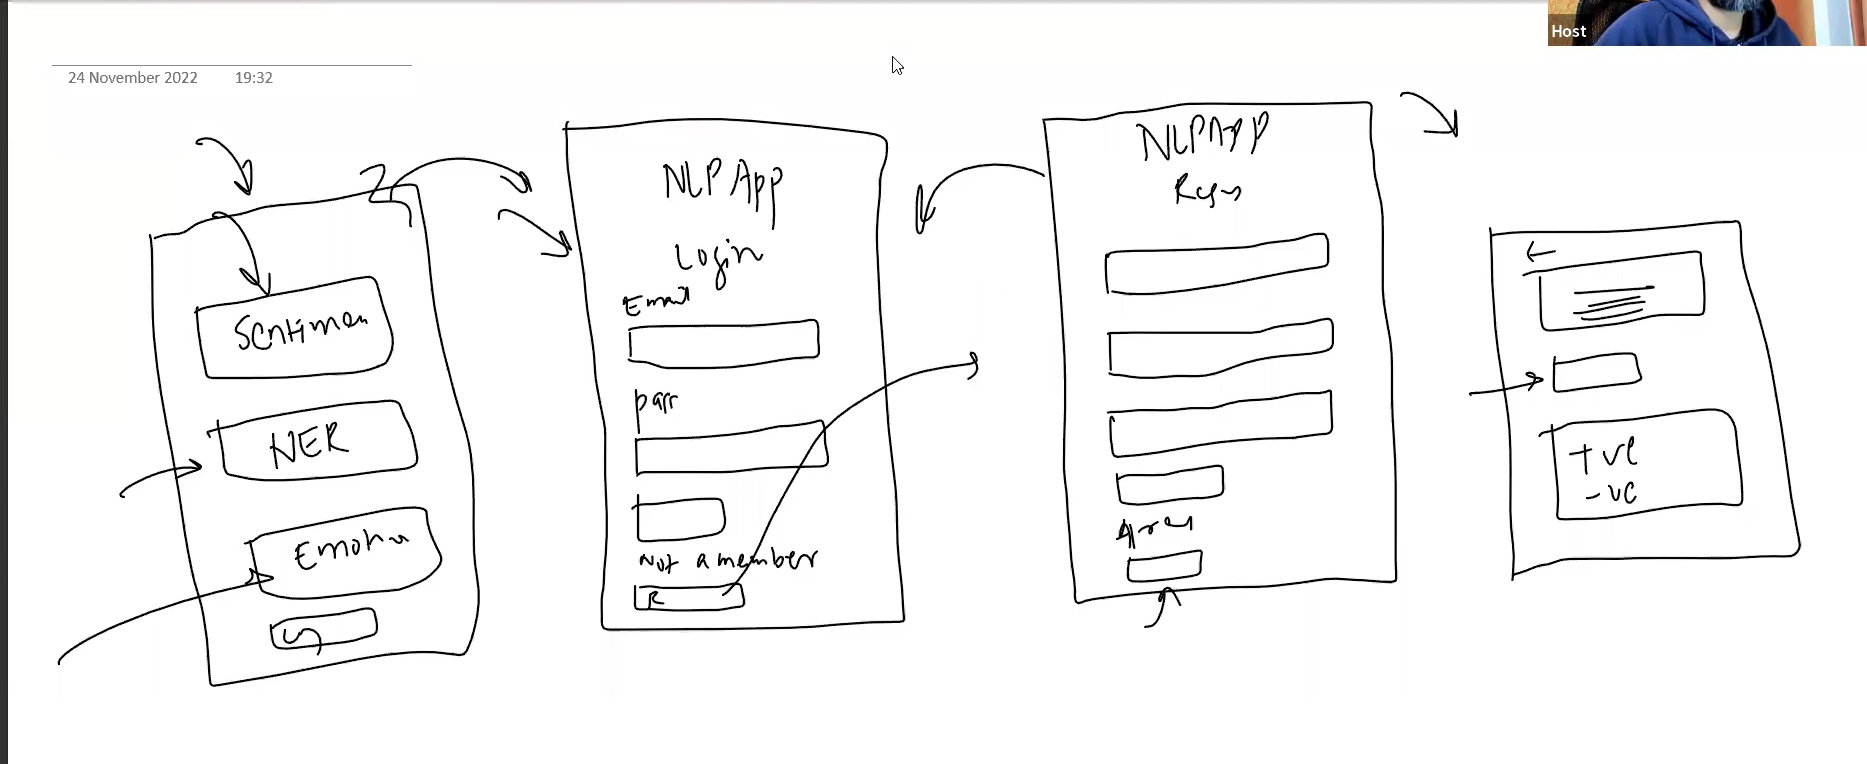 Host
24 November 2022 19:32
Sentimen
NER
Emotion
NLP App
Login
Email
pass
Not a member
R
NLPApp
+ve
-ve